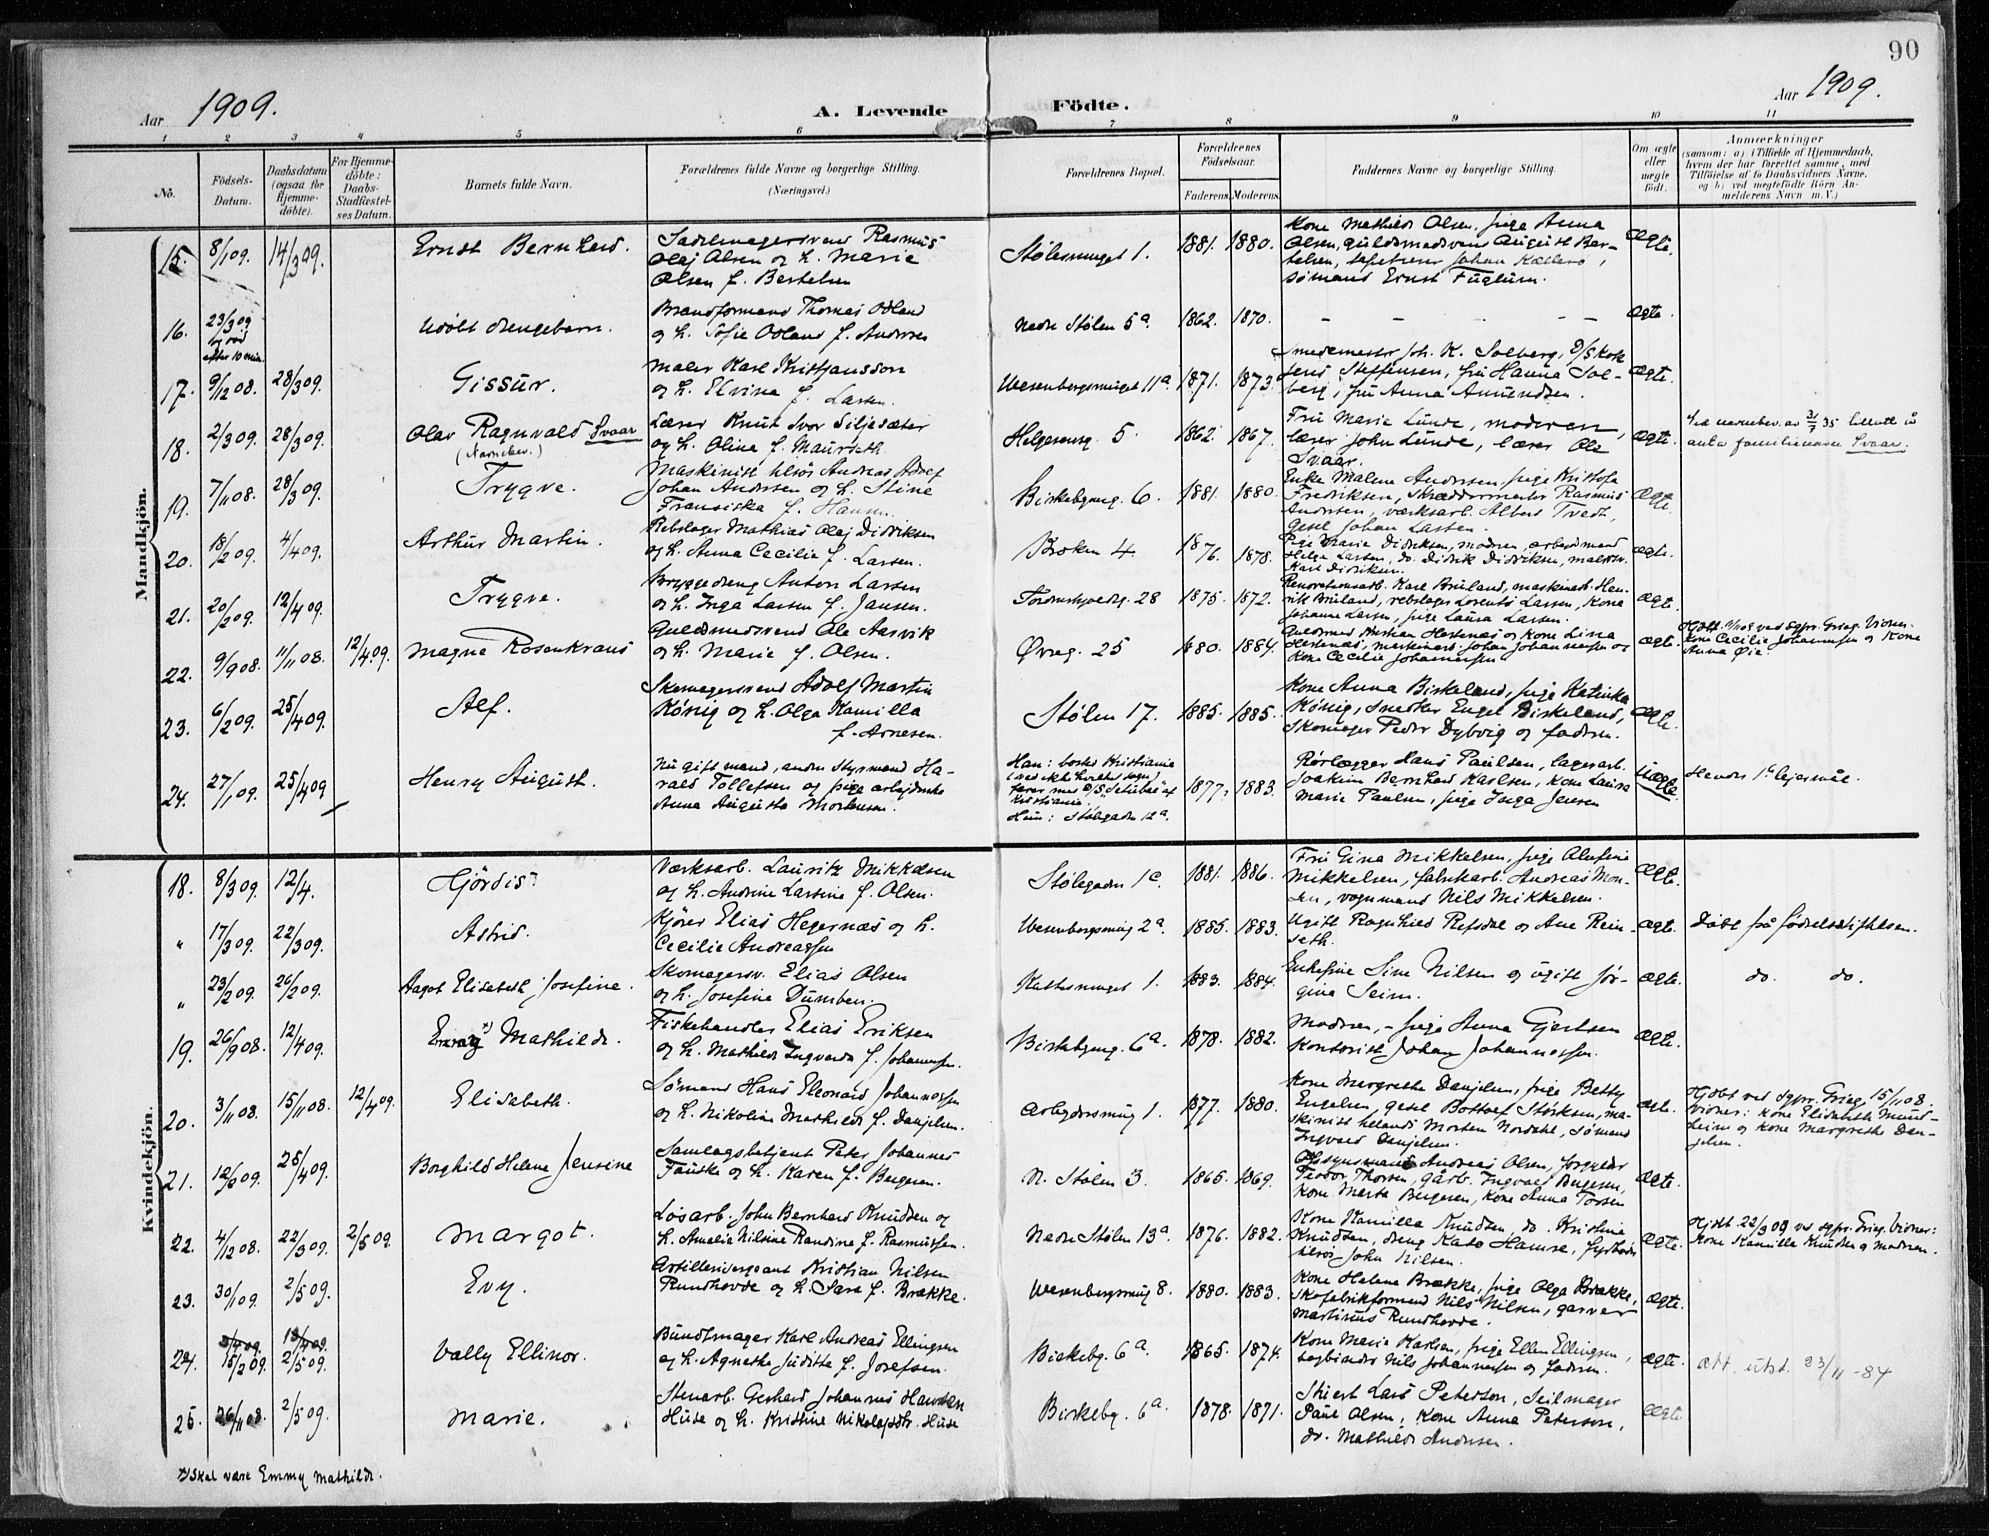 90
Aar 1909.
A. Levende Födte.
Aar 1909.
1 2 3 4 5 6 7 8 9 10 11
No.
Födsels-
Datum.
Daabsdatum
(ogsaa for
Hjemme-
döbte).
For Hjemme-
döbte:
Daabs-
Stadfæstel-
ses Datum.
Barnets fulde Navn.
Forældrenes fulde Navne og borgerlige Stilling.
(Næringsvei.)
Forældrenes Bopæl.
Forældrenes
Födselsaar.
Faderens. Moderens.
Faddernes Navne og borgerlige Stilling.
Om ægte
eller
uægte
födt.
Anmærkninger
(saasom: a) i Tilfælde af Hjemmedaab,
hvem der har forrettet samme, med
Tilföielse af to Daabsvidners Navne,
og b) ved uegtefödte Börn An-
melderens Navn m. V.)
Mandkjön.
15. 8/1 09. 14/3 09. Ernst Bernhard.
Sadelmagersvend Rasmus
Olaj Olsen og h. Marie
Olsen f. Bertelsen
Stølesmuget 1. 1881. 1880.
Kone Mathilde Olsen, pige Anna
Olsen, guldsmedsvend August Ber-
telsen, tapetserer Johan
sømand Ernst Fuglum.
Ægte.
16. 23/3 09
efter 10 min.
Udøbt drengebarn.
Brandformand Thomas Odland
og h. Sofie Odland f. Andersen
Nedre Stølen 5a. 1862. 1870. – – – – – Ægte.
17. 9/12 08. 28/3 09. Gissur.
Maler Karl Kristjansson
og h. Elvina f. Larsen.
Wesenbergsmuget 11a. 1871. 1873.
Smedemester Joh. K. Solberg,
Jens Steffensen, fru Hanna Sol-
berg, fru Anna Amundsen.
Ægte.
18. 2/3 09. 28/3 09. Olav Ragnvald Svaar
(Navnebev.)
Lærer Knut Ivor Siljesæter
og h. Olina f. Maurseth.
Helgesensg. 5. 1862. 1867.
Fru Marie Lunde, moderen,
lærer John Lunde, lærer Ole
Svaar.
Ægte.
Ved navnebev. av 3/7 35 tillatt å
anta familienavn Svaar.
19. 7/11 08. 28/3 09. Trygve.
Maskinist tilsøs Andreas Adolf
Johan Andersen og h. Stine
Fransiska f. Hansen.
Birkebgaug. 6. 1881. 1880.
Enke Malene Andersen, pige Kristofa
Fredriksen, Skræddermester Rasmus
Andersen, værksarb. Albert Tvedt,
gesel Johan Larsen.
Ægte.
20. 18/2 09. 4/4 09. Arthur Martin.
Rebslager Mathias Olaj Didriksen
og h. Anna Cecilie f. Larsen.
Kroken 4 1876. 1878.
Pige Marie Didriksen, modren, arbeidsmand
Helge Larsen, do. Didrik Didriksen,
Karl Didriksen.
Ægte.
21. 20/2 09. 12/4 09. Trygve.
Bryggedreng Anton Larsen
og h. Inga Larsen f. Jansen.
Tordenskjoldsg. 28 1875. 1872.
Renovationsarb. Karl Bruland, maskinarb. Hen-
rik Bruland, rebslager Lorents Larsen, Kone
Johanne Larsen, pige Laura Larsen.
Ægte.
22. 9/9 08. 11/11 08. 12/4 09. Magne Rosenkrans
Guldsmedsvend Ole Aasvik
og h. Marie f. Olsen.
Øvreg. 25 1880. 1884.
Guldsmed Kristian Hestenæs og Kone Lina
Hestenæs, maskinarb. Johan Johannessen og
Kone Cecilie Johannessen
Ægte.
Hjdbt. 11/11 08 ved sgpr. Grieg. Vidner:
Kone Cecilie Johannessen og Kone
Anna Øie.
23. 6/2 09. 25/4 09. Alf.
Skomagersvend Adolf Martin
König og h. Olga Kamilla
f. Arnesen.
Stølen 17. 1885. 1885.
Kone Anna Birkeland, pige Katinka
König, snedker Engel Birkeland,
Skomager Peder Dybvig og fadren.
Ægte.
24. 27/1 09. 25/4 09 Henry August.
Nu gift mand, anden styrmand Ha-
rald Tollefsen og pige arbejderske
Anna Augusta Mortensen.
Han: bosted Kristiania
Kristiania.
Hun: Stølegaden 12a.
1877. 1883.
Rørlægger Hans Paulsen, lagerarb.
Joakim Bernhard Karlsen, Kone Laura
Marie Paulsen, pige Inga Jensen
Uægte.
Hendes 1ste lejermål.
Kvindekjön.
18. 8/3 09. 12/4. Hjördis.
Værksarb. Lauritz Mikkelsen
og h. Andrine Larsine f. Olsen.
Stølegaden 1c. 1881. 1886.
Fru Gina Mikkelsen, pige Alufine
Mikkelsen, fabrikarb. Andreas Mon-
sen, vognmand Nils Mikkelsen.
Ægte.
" 17/3 09. 22/3 09. Astrid.
Kjører Elias Hegernæs og h.
Cecilie Andreassen
Wesenbergsmug 2a. 1885. 1883.
Ugift Ragnhild Refsdal og Ane Rein-
seth.
Ægte.
Døbt på fødselsstiftelsen.
" 23/2 09. 26/2 09. Aagot Elisabeth Josefine.
Skomagersv. Elias Olsen
og h. Josefine Dumben.
Kattesmuget 1. 1883. 1884.
Enkefrue Sine Nilsen og ugift Jør-
gine Seim.
Ægte. do. do.
19. 26/9 08. 12/4 09. Emmy *) Mathilde.
Fiskehandler Elias Eriksen
og h. Mathilde Ingvarda f. Johannesen.
Birkebgaug. 6a. 1878. 1882.
Modren, – pige Anna Gjertsen
Kontorist Johan Johannessen.
Ægte.
20. 3/11 08. 15/11 08. 12/4 09. Elisabeth.
Sømand Hans Eleonard Johannessen
og h. Nikoline Mathilde f. Danjelsen.
Arbejdersmug 1. 1877. 1880.
Kone Margrethe Danjelsen, pige Betty
Engelsen, gesel Bottolf Størksen, ma-
skinist tillands Morten Nordahl, sømand
Ingvald Danjelsen.
Ægte.
Hjdbt ved sgpr. Grieg 15/11 08.
Vidner: Kone Elisabeth Mund-
heim og Kone Margrethe Dan-
jelsen.
21. 12/2 09. 25/4 09. Borghild Helene Jensine
Samlagsbetjent Peter Johannes
Fauske og h. Karen f. Bergesen.
N. Stølen 3. 1865. 1869.
Opsynsmand Andreas Olsen, forgylder
Teodor Thorsen, gårb. Ingvald Bergesen,
Kone Marta Bergesen, Kone Anna Torsen
Ægte.
22. 4/12 08. 22/3 09. 2/5 09. Margot.
Løsarb. John Bernhard Knudsen og
h. Amalie Nilsine Randine f. Rasmussen.
Nedre Stølen 13a. 1876. 1882.
Kone Kamilla Knudsen, do. Kristine
Knudsen, dreng Kato Hamre, fyrbøder
tilsøs John Nilsen.
Ægte.
Hjdbt 22/3 09 ved sgpr. Grieg. Vidner:
Kone Kamilla Knudsen og modren.
23. 30/1 09. 2/5 09. Evy.
Artillerisergeant Kristian Nilsen
Rundhovde og h. Sara f. Brække.
Wesenbergsmug 8. 1880. 1883.
Kone Helene Brække, pige Olga Brække,
Skofabrikformand Nils Nilsen, garver
Martinus Rundhovde.
Ægte.
24. 15/2 09. 2/5 09. Vally Ellinor.
Bundtmager Karl Andreas Ellingsen
og h. Agnethe Juditte f. Josefsen.
Birkebg. 6a. 1865. 1874.
Kone Marie Karlsen, pige Ellen Ellingsen,
bogbinder Nils Johannessen og fadren.
Ægte.
att. utst. 23/11-84
25. 26/11 08. 2/5 09. Marie.
Stenarb. Gerhard Johannes Hansen
Huse og h. Kristine Nikolajsdtr. Huse
Birkebg. 6a. 1878. 1871.
Skibst. Lars Peterson, Seilmager
Paul Olsen, Kone Anna Peterson,
do. Mathilde Andersen.
Ægte
*) Skal være Emmy Mathilde.